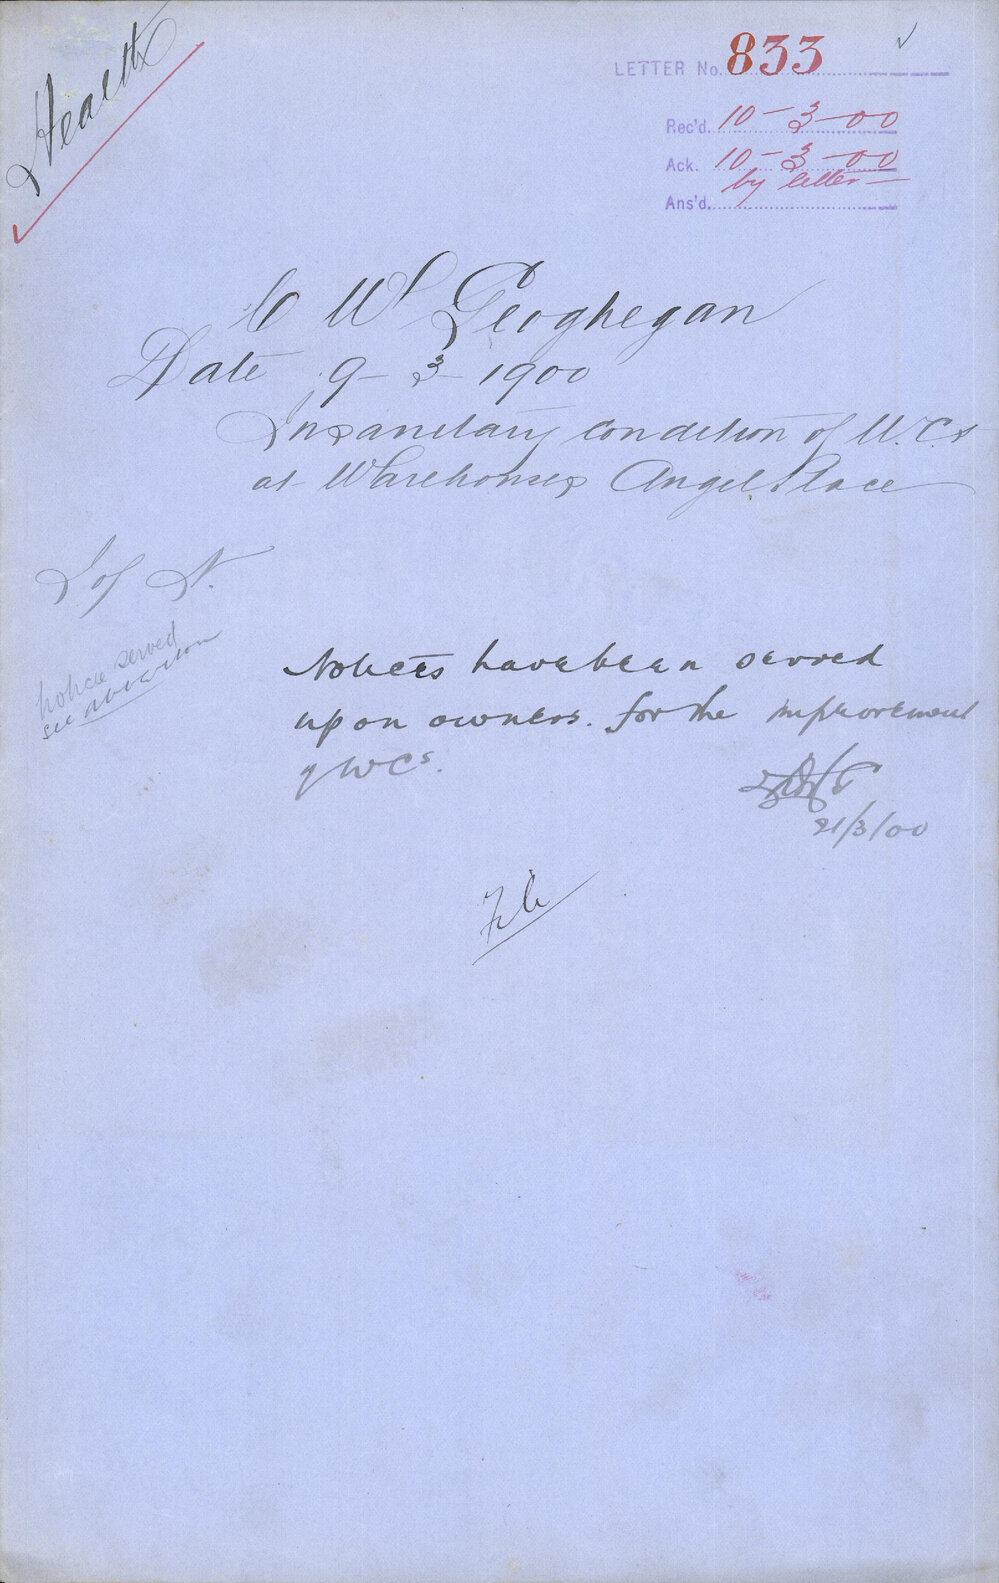 Health
LETTER No. 833
Rec'd. 10-3-00
Ack. 10-3-00
by letter
Ans'd.
C W Geoghegan
Date 9-3-1900
Insanitary condition of W.C.s
at Warehouses Angel Place
I of N.
notices served
see above
Notices have been served
upon owners. for the improvement
of WCs.
21/3/00
File